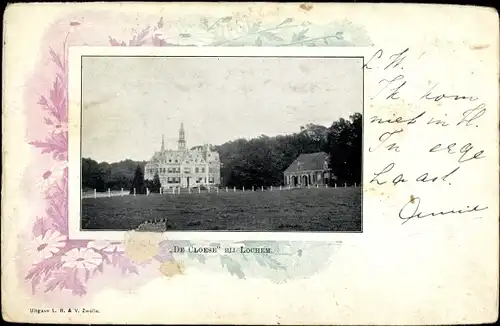 L W.
Ik kom
niet in H.
In erge
Haast.
„DE CLOESE" BIJ LOCHEM.
Uitgave L. R. & V. Zwolle.